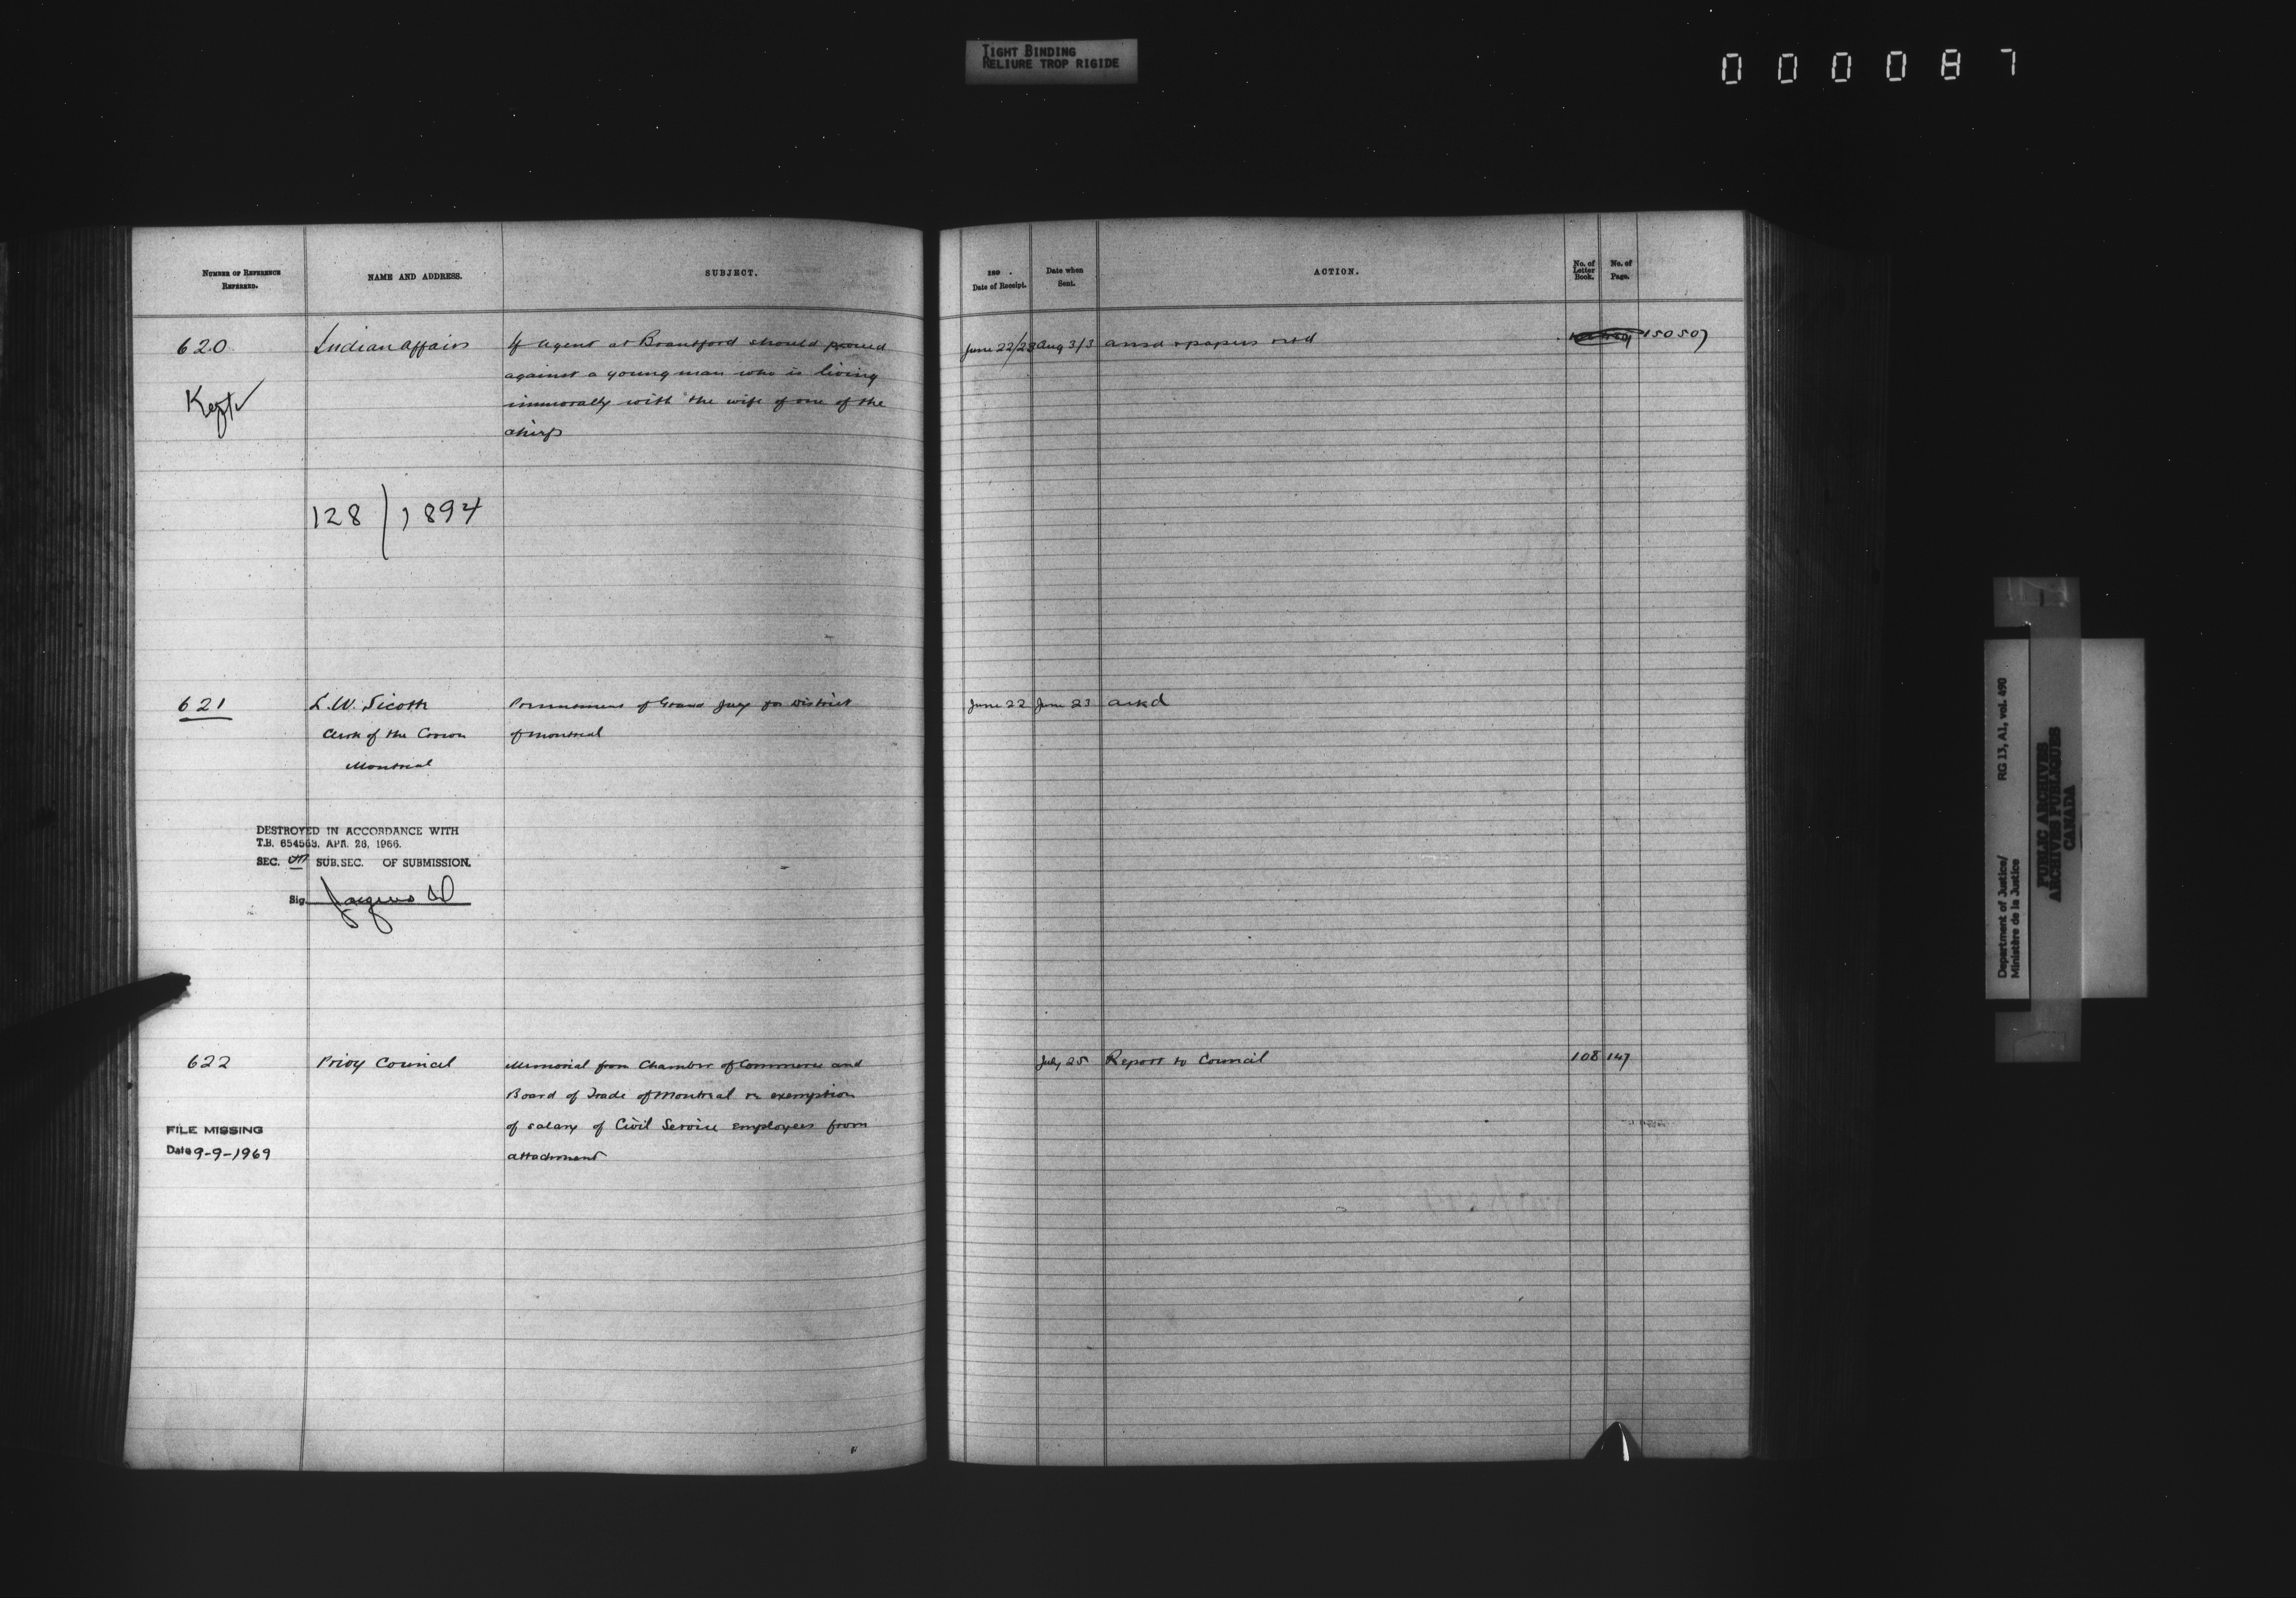 TIGHT BINDING
RELIURE TROP RIGIDE
000087
NUMBER OF REFERENCE
REFERRED.
NAME AND ADDRESS.
SUBJECT.
189 .
Date of Receipt.
Date when
Sent.
ACTION.
No. of
Letter
Book.
No. of
Page.
620
Indian Affairs
If agent at Brantford should proceed
against a young man who is living
immorally with the wife of one of the
chiefs
June 22/23
Aug 3/3
ansd & papers retd
150 507
Kept
128/1894
621
L. W. Sicotte
Clerk of the Crown
Montreal
Presentment of Grand Jury for District
of Montreal
June 22
June 23
ackd
DESTROYED IN ACCORDANCE WITH
T.B. 654563, APR. 26, 1966.
SEC. SUB.SEC. OF SUBMISSION.
Sig.
622
Privy Council
Memorial from Chamber of Commerce and
Board of Trade of Montreal re exemption
of salary of Civil Service employees from
attachment
July 25
Report to Council
108
147
FILE MISSING
Date 9-9-1969
Department of Justice/ RG 13, A1, vol. 490
Ministère de la Justice
PUBLIC ARCHIVES
ARCHIVES PUBLIQUES
CANADA